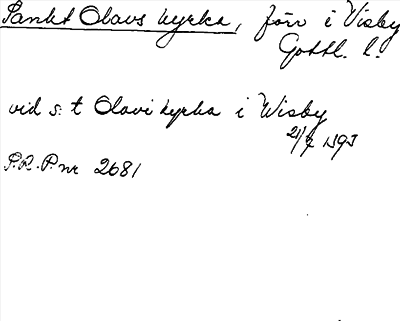 Sankt Olavs kyrka, förr i Visby
Gottl. l.
vid s:t Olavi kyrka i Wisby
21/7 1393
S.R.P. nr 2681